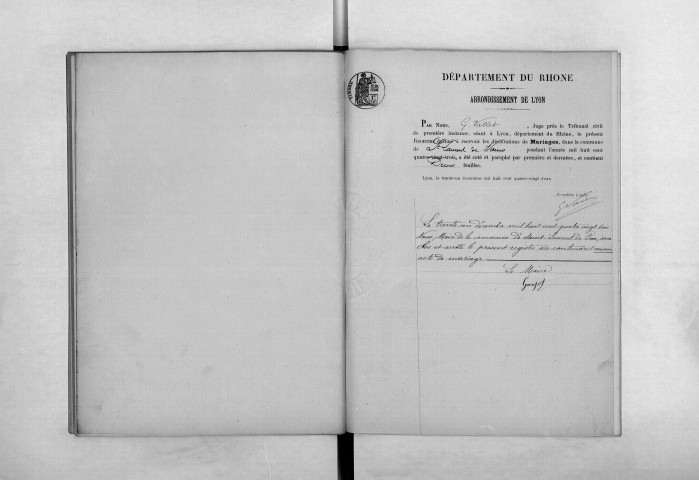 DÉPARTEMENT DU RHONE
ARRONDISSEMENT DE LYON
PAR NOUS, G Vallet, Juge près le Tribunal civil
de première instance, séant à Lyon, département du Rhône, le présent
REGISTRE destiné à recevoir les déclarations de Mariages, dans la commune
de St Laurent de Vaux pendant l'année mil huit cent
quatre-vingt-trois, a été coté et paraphé par première et dernière, et contient
Deux feuilles.
Lyon, le trente-un décembre mil huit cent quatre-vingt-deux.
Première
Le trente un décembre mil huit cent quatre vingt trois
Nous, Maire de la commune de Saint Laurent de Vaux, avons
clos et arrêté le présent registre ne contenant aucun
acte de mariage
Le Maire